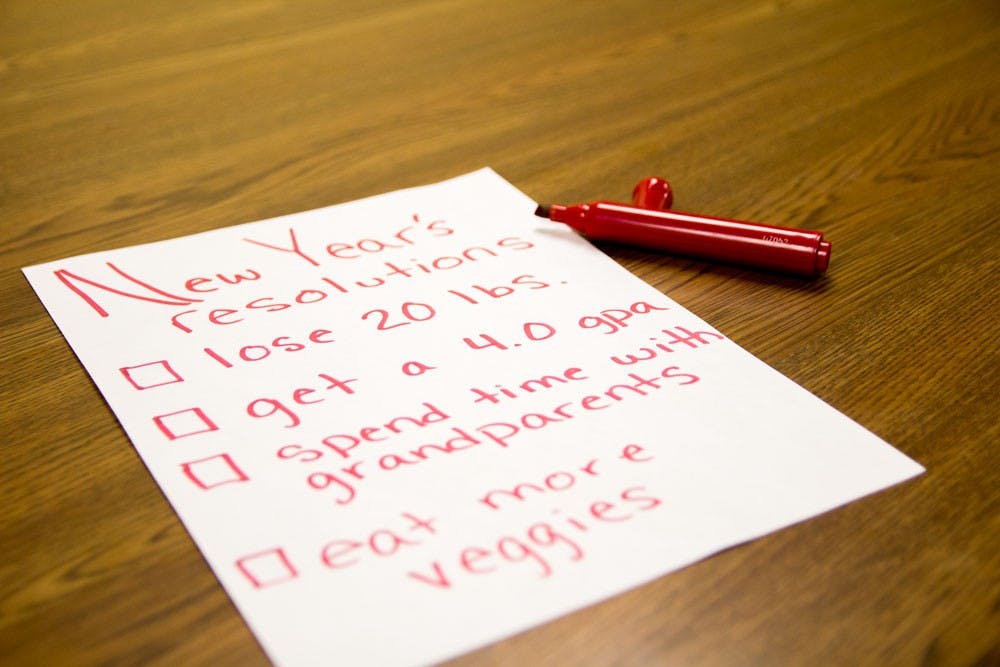 New Year's
resolutions
lose 20 lbs.
get a 4.0 gpa
spend time with
grandparents
eat more
veggies